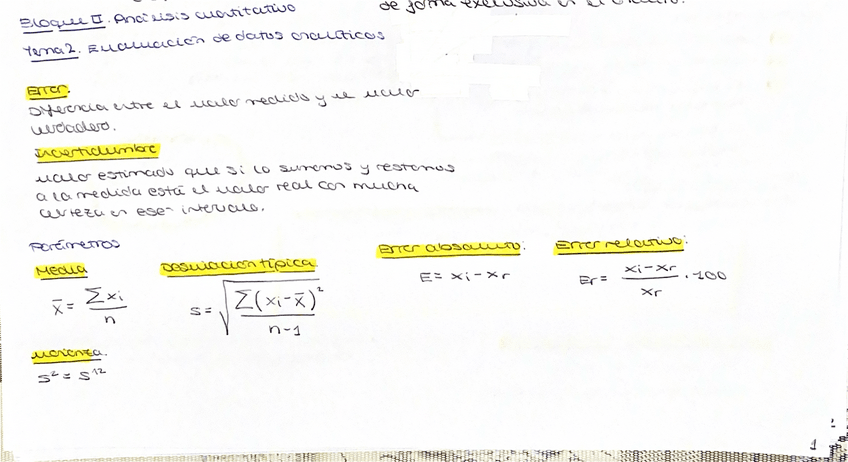 de forma exclusiva en el
Bloque II. Análisis cuantitativo
Tema 2. Evaluación de datos analíticos
Error.
Diferencia entre el valor medido y el valor
verdadero.
Incertidumbre
valor estimado que si lo sumamos y restamos
a la medida está el valor real con mucha
certeza en ese intervalo.
Parámetros
Media
x̄ = Σxi / n
Desviación típica
s = √(Σ(xi - x̄)² / n-1)
Error absoluto:
E = xi - xr
Error relativo:
Er = (xi - xr / xr) · 100
Varianza.
s² = s^12
1